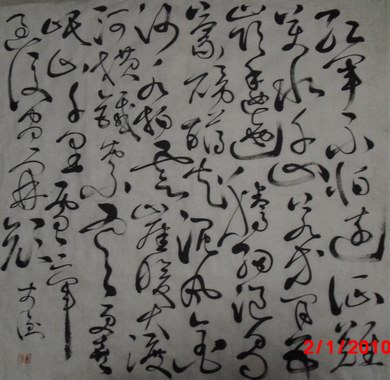 红军不怕远征难
萬水千山只等闲五
嶺逶迤腾细浪乌
蒙磅礴走泥丸金
沙水拍云崖暖大渡
横鐵索寒更喜
岷山千里雪三军
过後尽开颜
2/1/2010